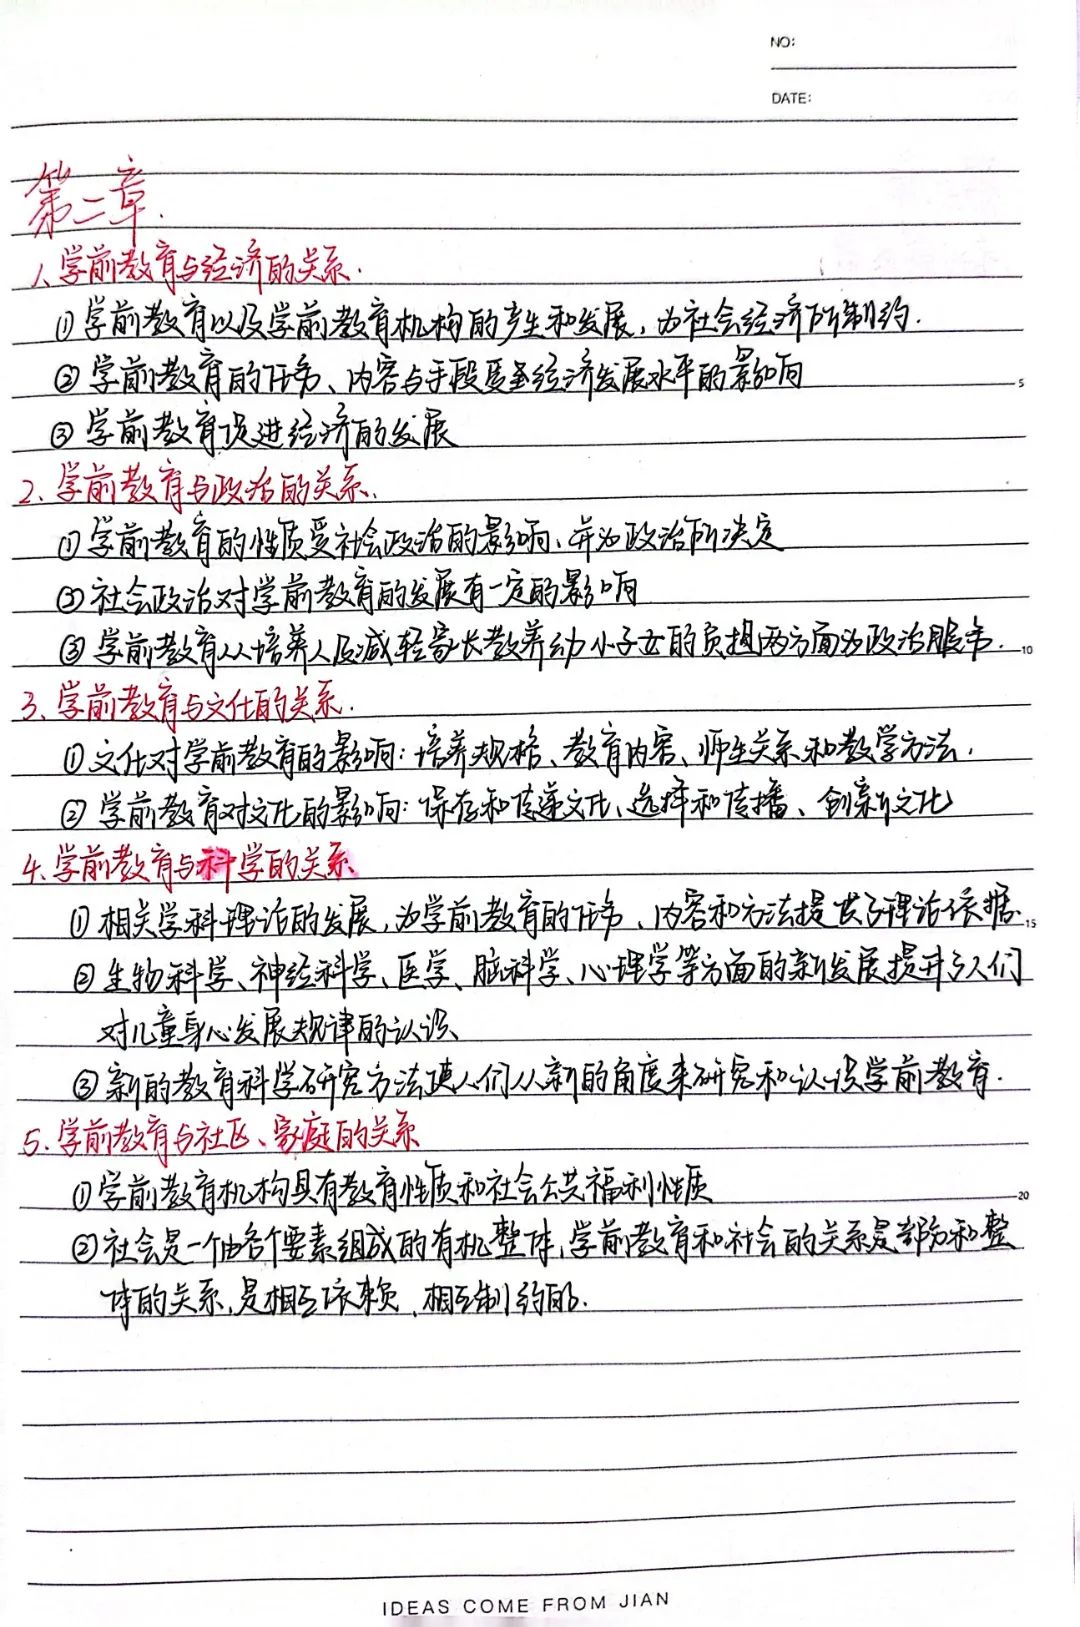 NO:
DATE:
第二章.
1、学前教育与经济的关系.
①学前教育以及学前教育机构的产生和发展,为社会经济所制约.
②学前教育的任务、内容与手段受到经济发展水平的影响 5
③学前教育促进经济的发展
2、学前教育与政治的关系.
①学前教育的性质受社会政治的影响、并为政治所决定
②社会政治对学前教育的发展有一定的影响
③学前教育从培养人及减轻家长教养幼小子女的负担两方面为政治服务. 10
3、学前教育与文化的关系.
①文化对学前教育的影响:培养规格、教育内容、师生关系和教学方法.
②学前教育对文化的影响:保存和传递文化、选择和传播、创新文化
4.学前教育与科学的关系
①相关学科理论的发展,为学前教育的任务、内容和方法提供了理论依据. 15
②生物科学、神经科学、医学、脑科学、心理学等方面的新发展提升了人们
对儿童身心发展规律的认识
③新的教育科学研究方法使人们从新的角度来研究和认识学前教育.
5.学前教育与社区、家庭的关系
①学前教育机构具有教育性质和社会公共福利性质 20
②社会是一个由各个要素组成的有机整体,学前教育和社会的关系是部分和整
体的关系,是相互依赖,相互制约的.
IDEAS COME FROM JIAN